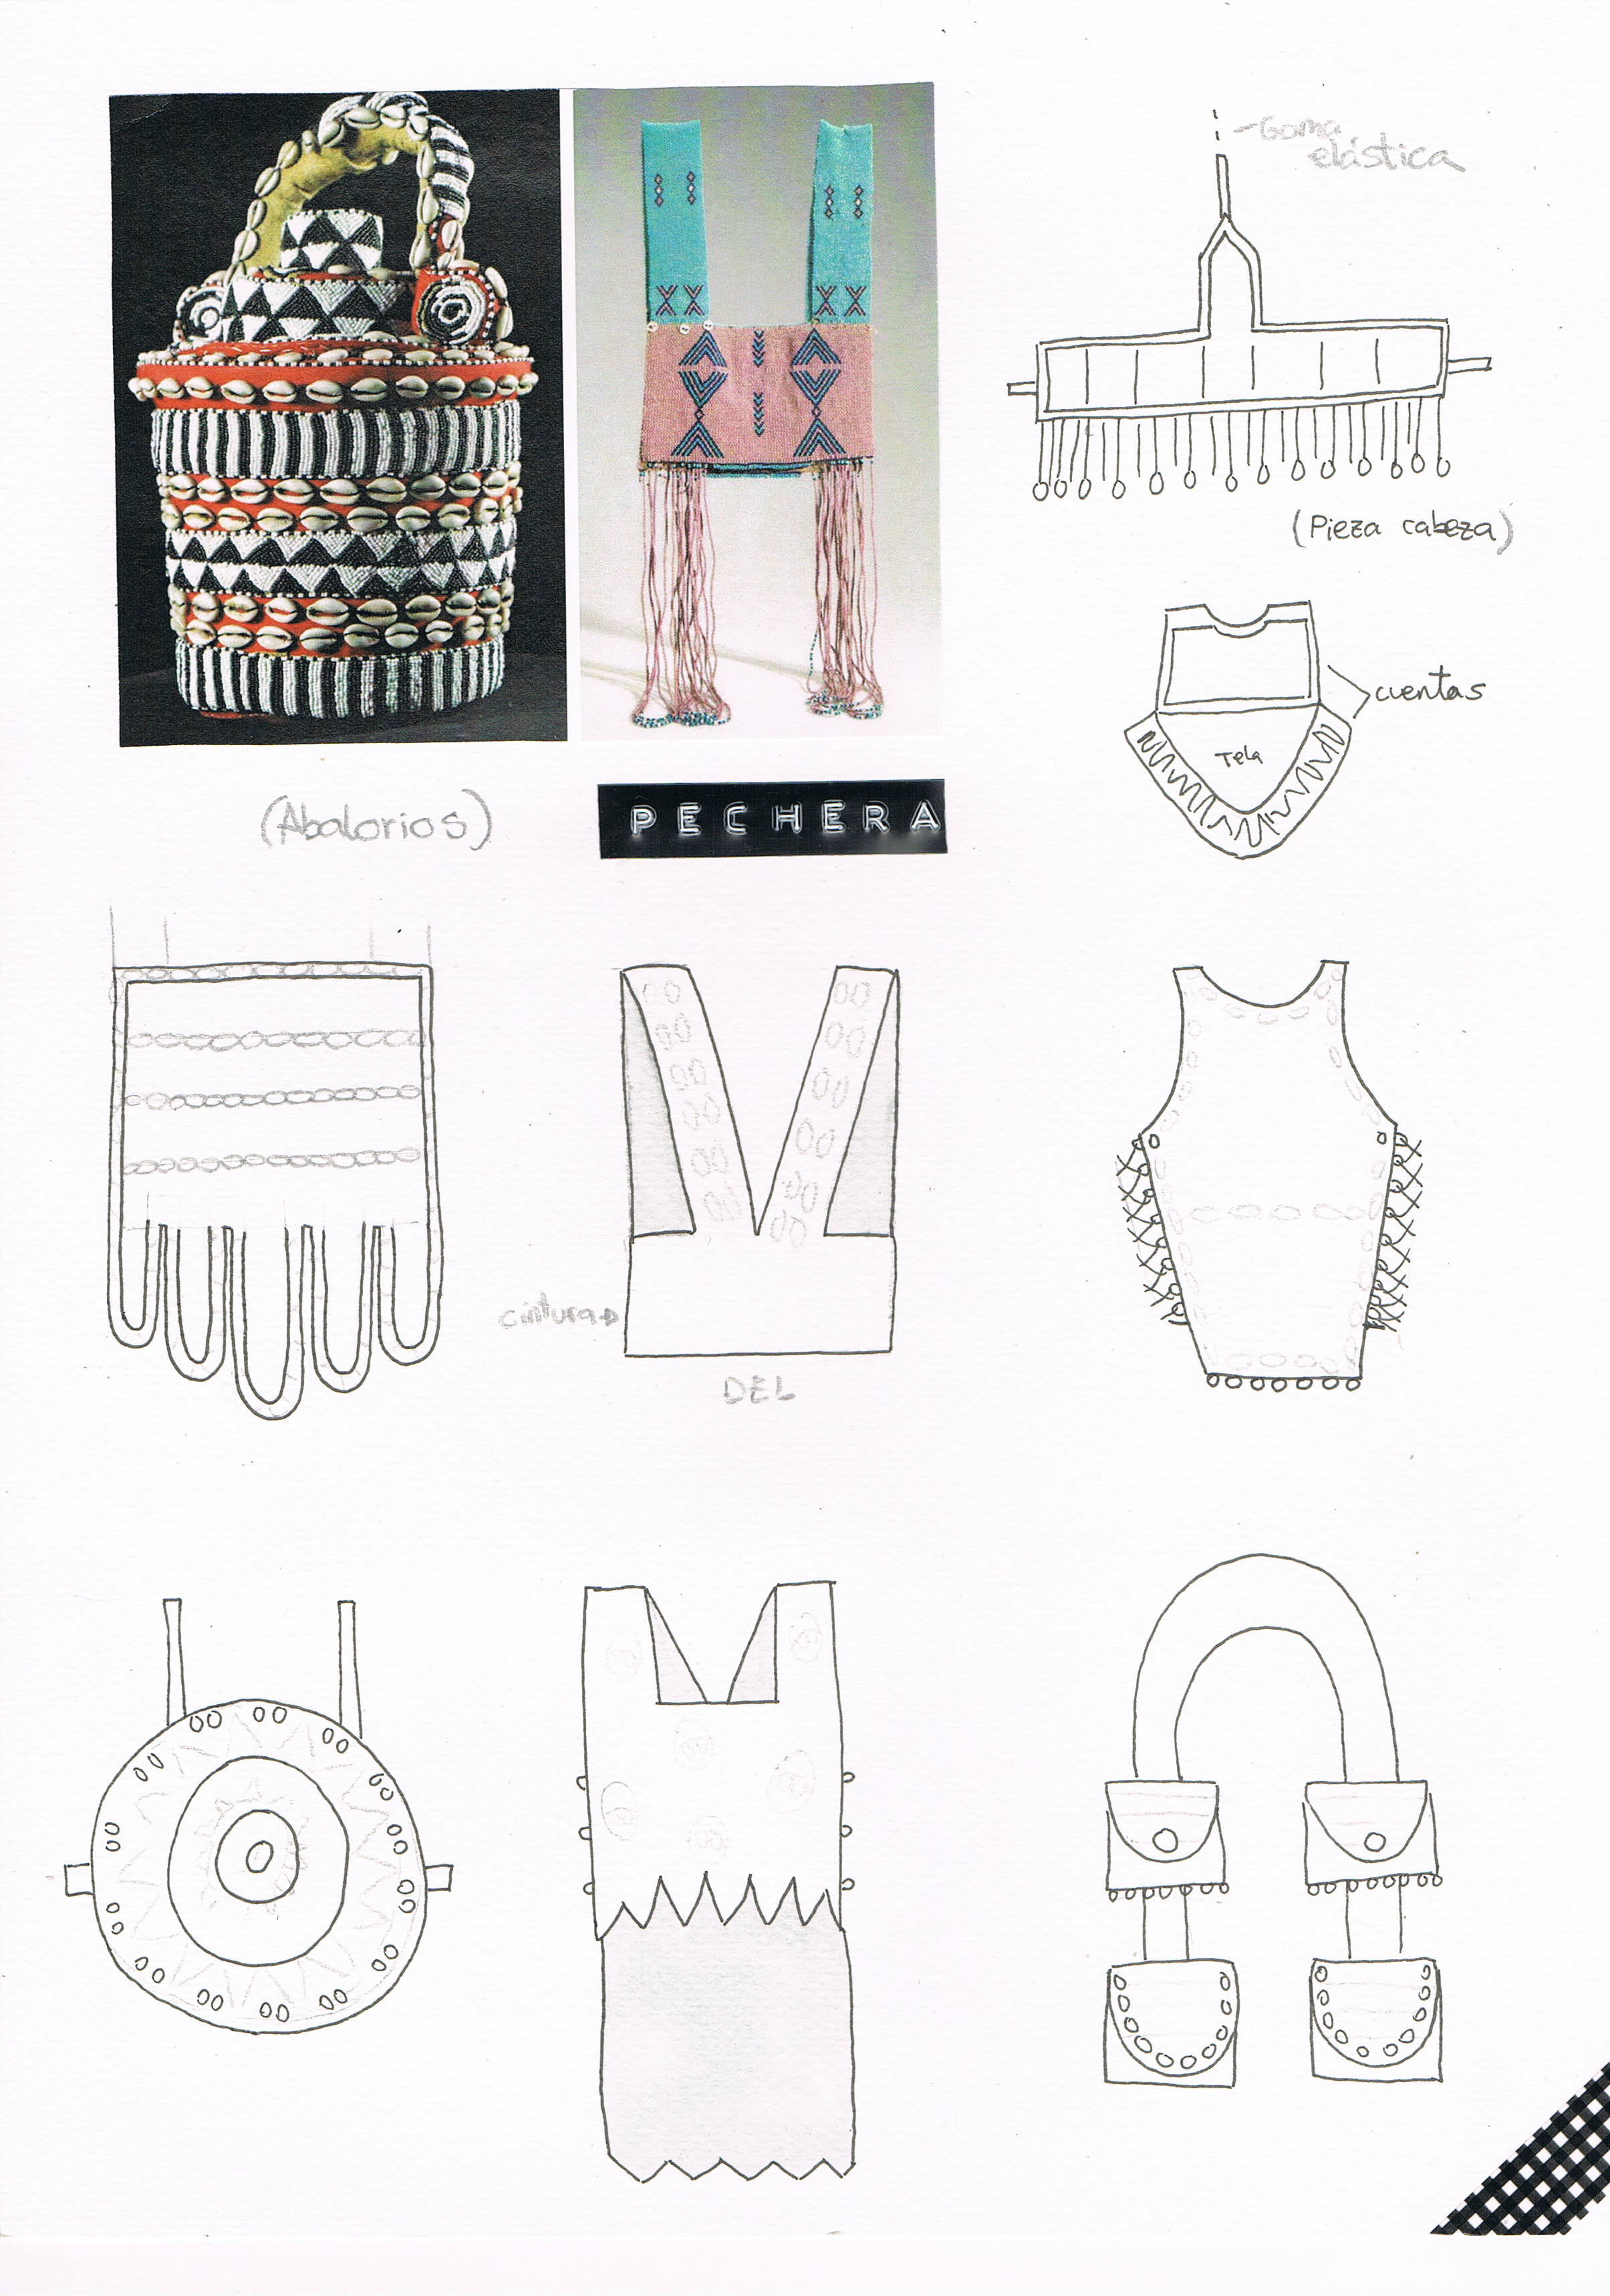 -Goma
elástica
(Pieza cabeza)
cuentas
Tela
(Abalorios)
PECHERA
cintura
DEL